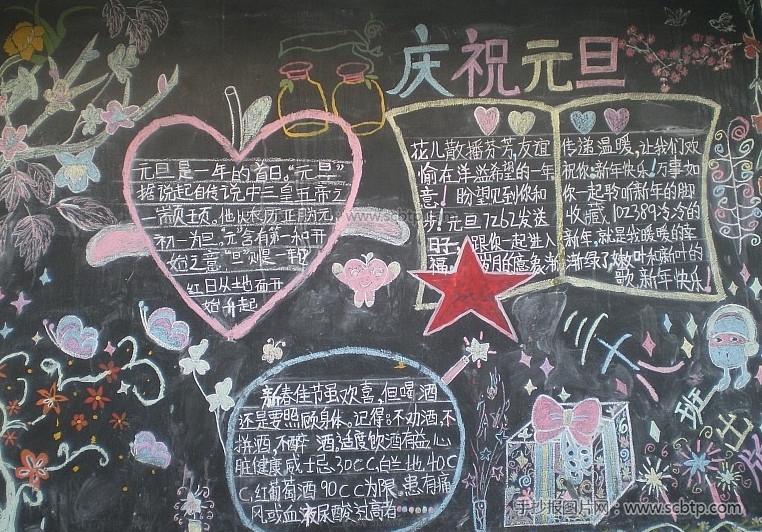 庆祝元旦
元旦是一年的首日,“元旦”
据说起自传说中三皇五帝之
一颛顼,他以农历正月为元,
初一为旦。“元”含有第一和开
始之意“旦”则是一轮
红日从土地面开
始升起
花儿散播芬芳,友谊
愉在洋溢希望的一年
意!盼望见到你和
步!元旦7262发送
旺一 跟你一起进入
福 岁月的意象渐
传递温暖,让我们欢
祝你:新年快乐!万事如
你一起聆听新年的脚
收藏,102389冷冷的
新年,就是我暖暖的幸
渐绿了嫩叶和新叶的
歌,新年快乐!
新春佳节虽欢喜,但喝酒
还是要照顾身体。记得:不劝酒,不
拼酒,不醉酒,适度饮酒有益心
脏健康,威士忌30CC,白兰地40C
C,红葡萄酒90CC为限。患有痛
风或血液尿酸过高者……
三十八
班出版
www.scbtp.com
手抄报图片网:www.scbtp.com